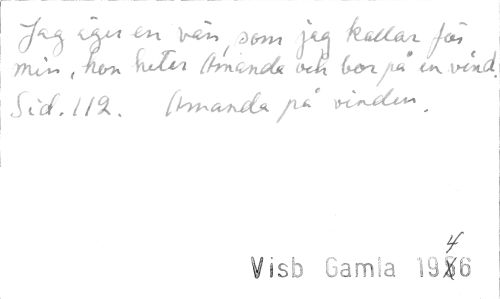 Jag äger en vän, som jag kallar för
min, hon heter Amanda och bor på en vind.
Sid. 112. Amanda på vinden.
Visb Gamla 1946